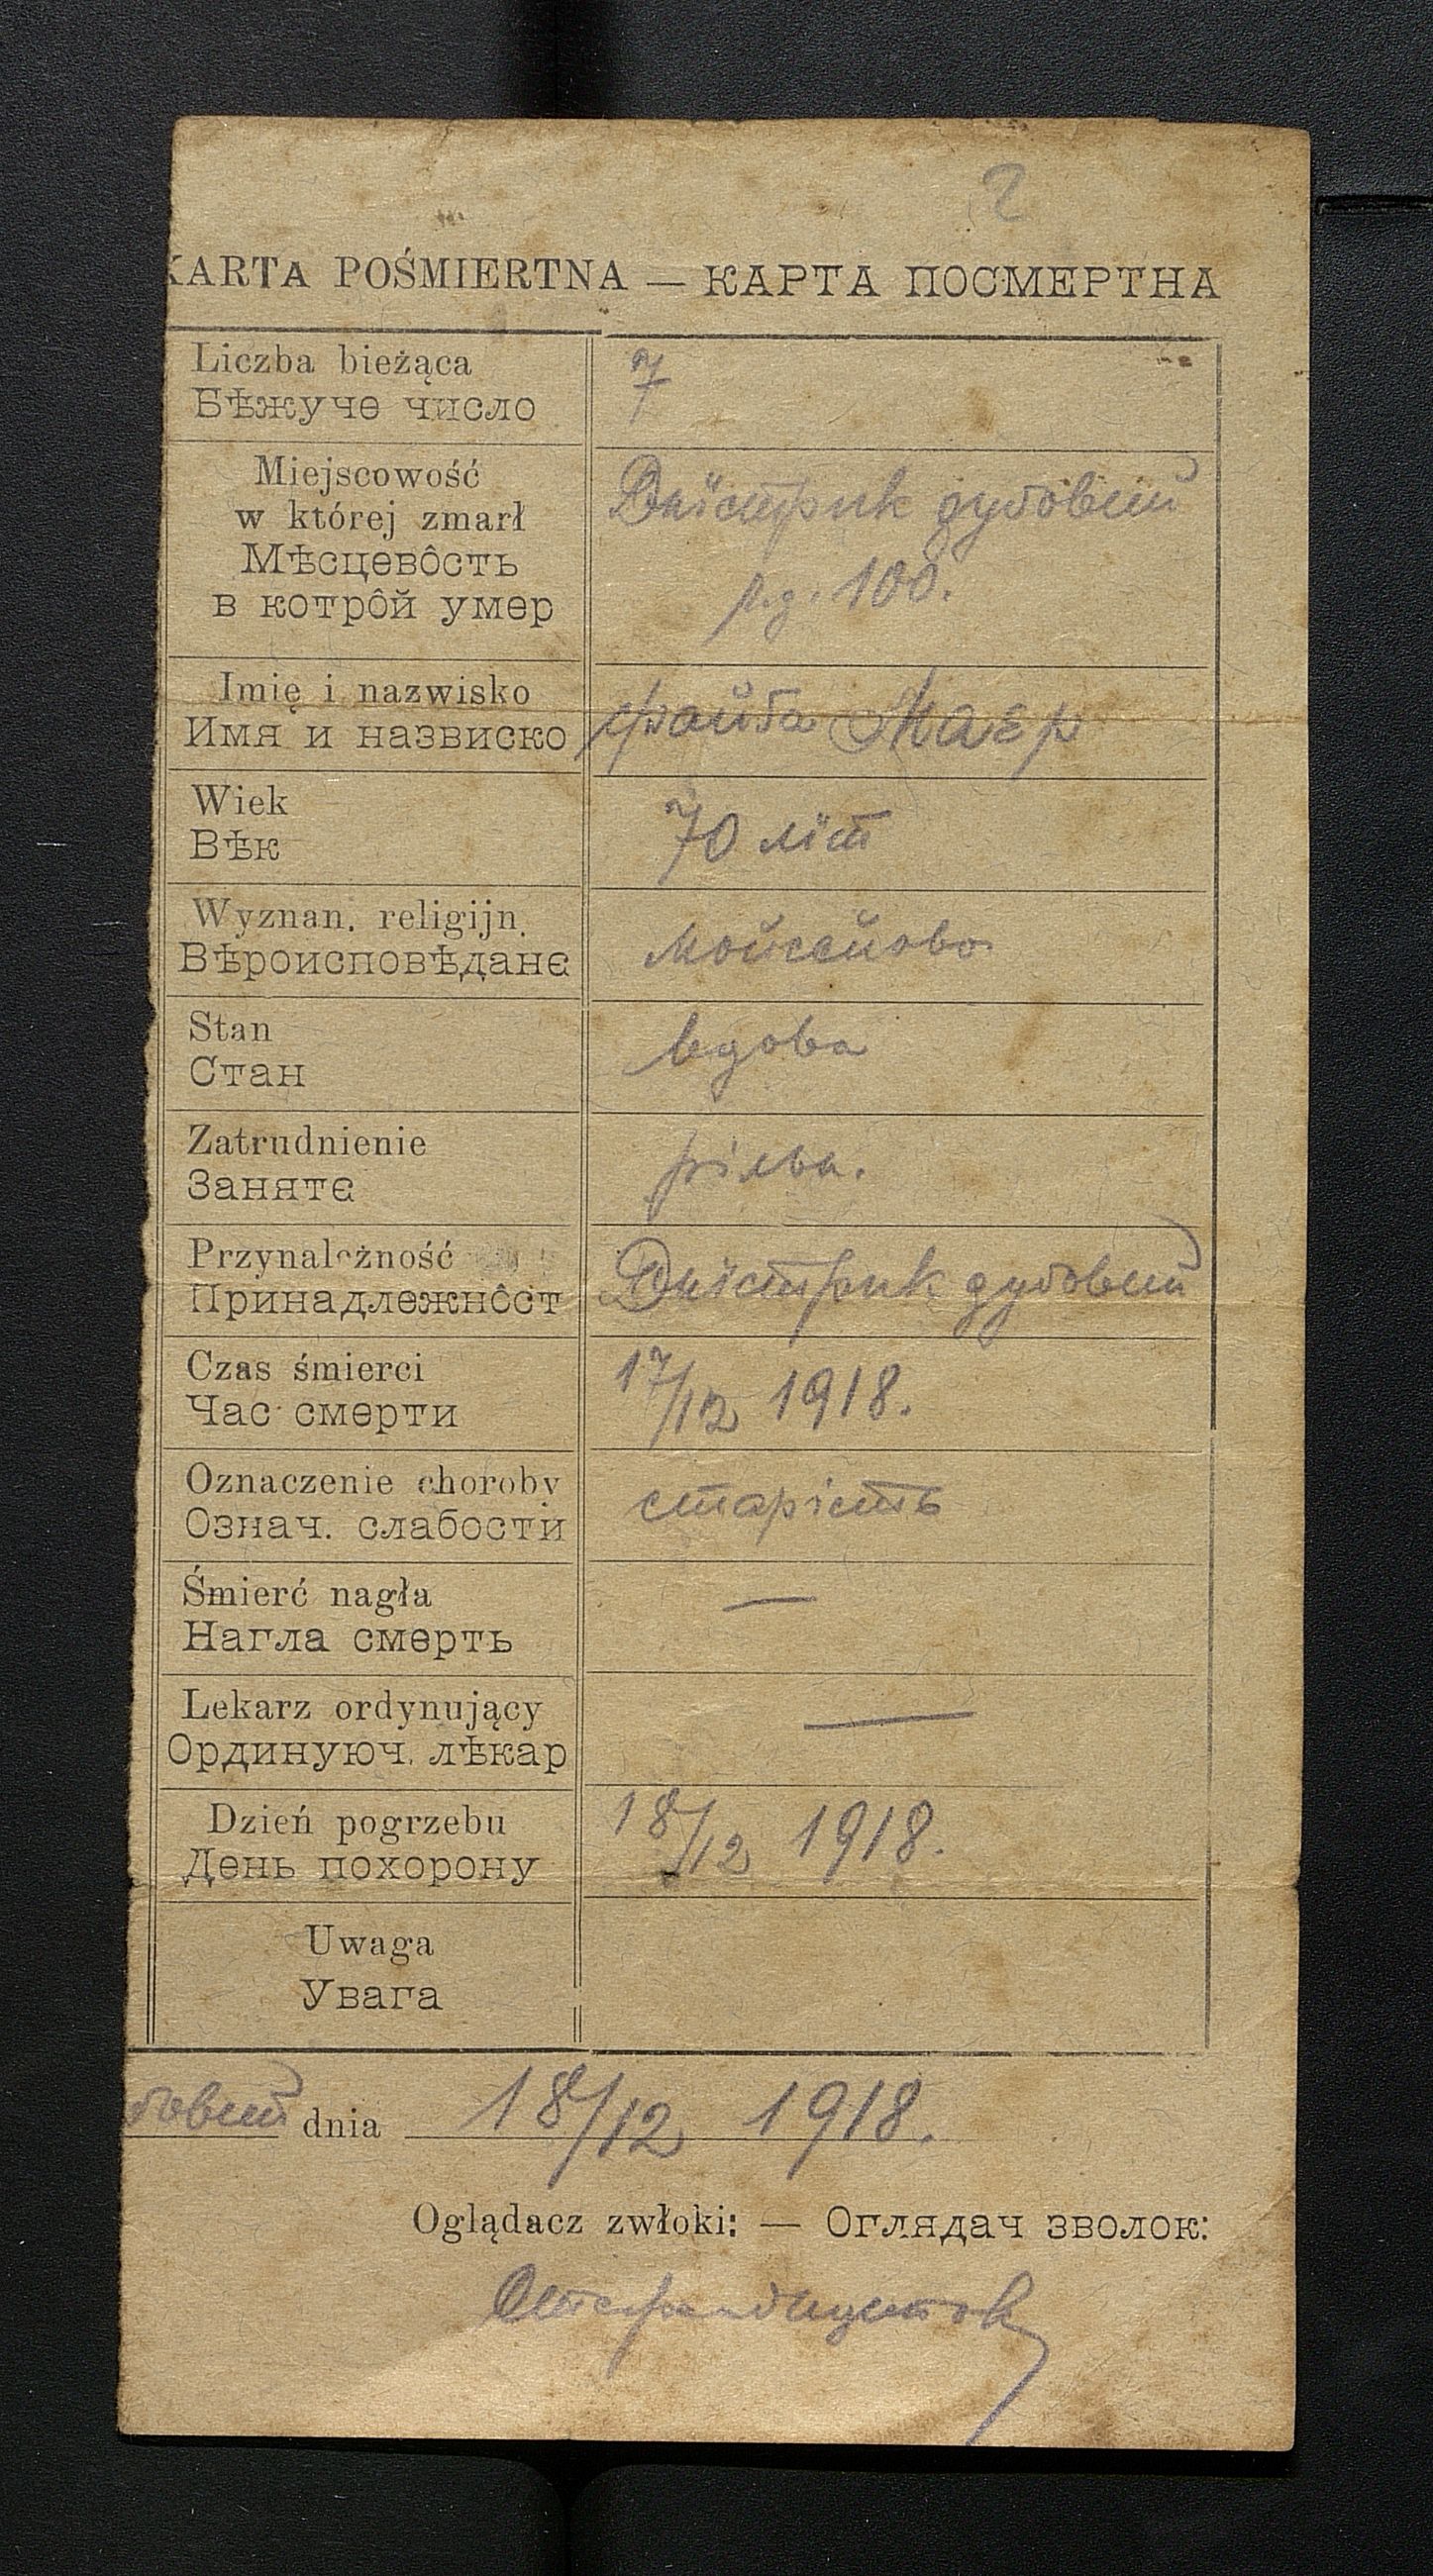 2
KARTA POŚMIERTNA — КАРТА ПОСМЕРТНА
Liczba bieżąca
Бѣжуче число
7
Miejscowość
w której zmarł
Мѣсцевôсть
в котрôй умер
Днїстрик дубовий
ч.д. 100.
Imię i nazwisko
Имя и назвиско
Файга Маєр
Wiek
Вѣк
70 лїт
Wyznan. religijn.
Вѣроисповѣданє
мойсейово
Stan
Стан
вдова
Zatrudnienie
Занятє
рільн.
Przynależność
Принадлежнôст
Днїстрик дубовий
Czas śmierci
Час смерти
17/12 1918.
Oznaczenie choroby
Означ. слабости
старість
Śmierć nagła
Нагла смерть
—
Lekarz ordynujący
Ординуюч. лѣкар
—
Dzień pogrzebu
День похорону
18/12 1918.
Uwaga
Увага
бовий dnia 18/12 1918.
Oglądacz zwłoki: — Оглядач зволок: